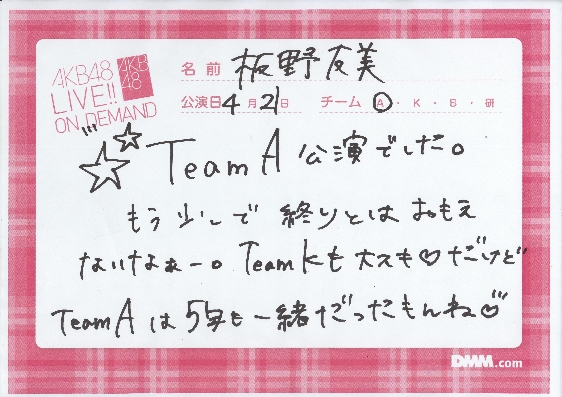 AKB48
LIVE!!
ON DEMAND
AKB
48
名前 板野友美
公演日 4月21日 チーム A・K・B・研
Team A 公演でした。
もう少しで 終りとは おもえ
ないなぁー。Team Kも 大スキ♡だけど
Team A は 5年も 一緒だったもんね♡
DMM.com